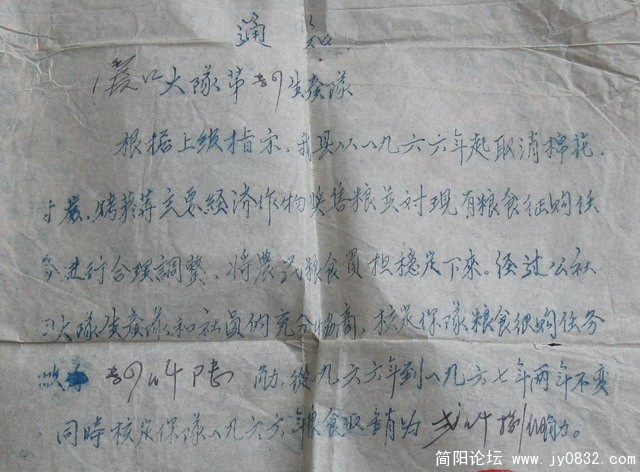 通知
大隊第 生産隊
根据上级指示,我县从一九六六年起取消棉花、
甘蔗、烤菸等主要經济作物奖售粮並对現有粮食征购任
务进行合理調整、将農民粮食負担穩定下来。经过公社
大隊生産隊和社員的充分協商、核定你隊粮食征购任务
为 斤,從一九六六年到一九六七年两年不变
同時核定你隊一九六六年粮食 销为 斤。
简阳论坛 www.jy0832.com